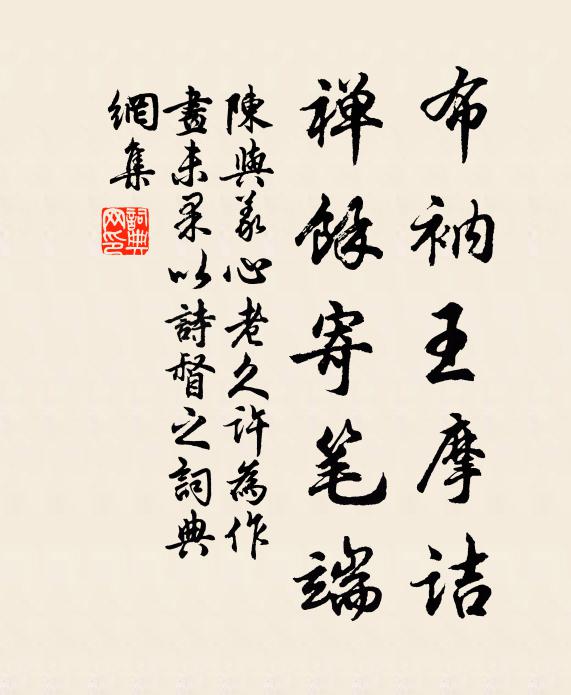 布衲王摩詰
禅餘寄笔端
陳與義心老久許為作
畫未果以詩督之詞典
網集
詞典
网印